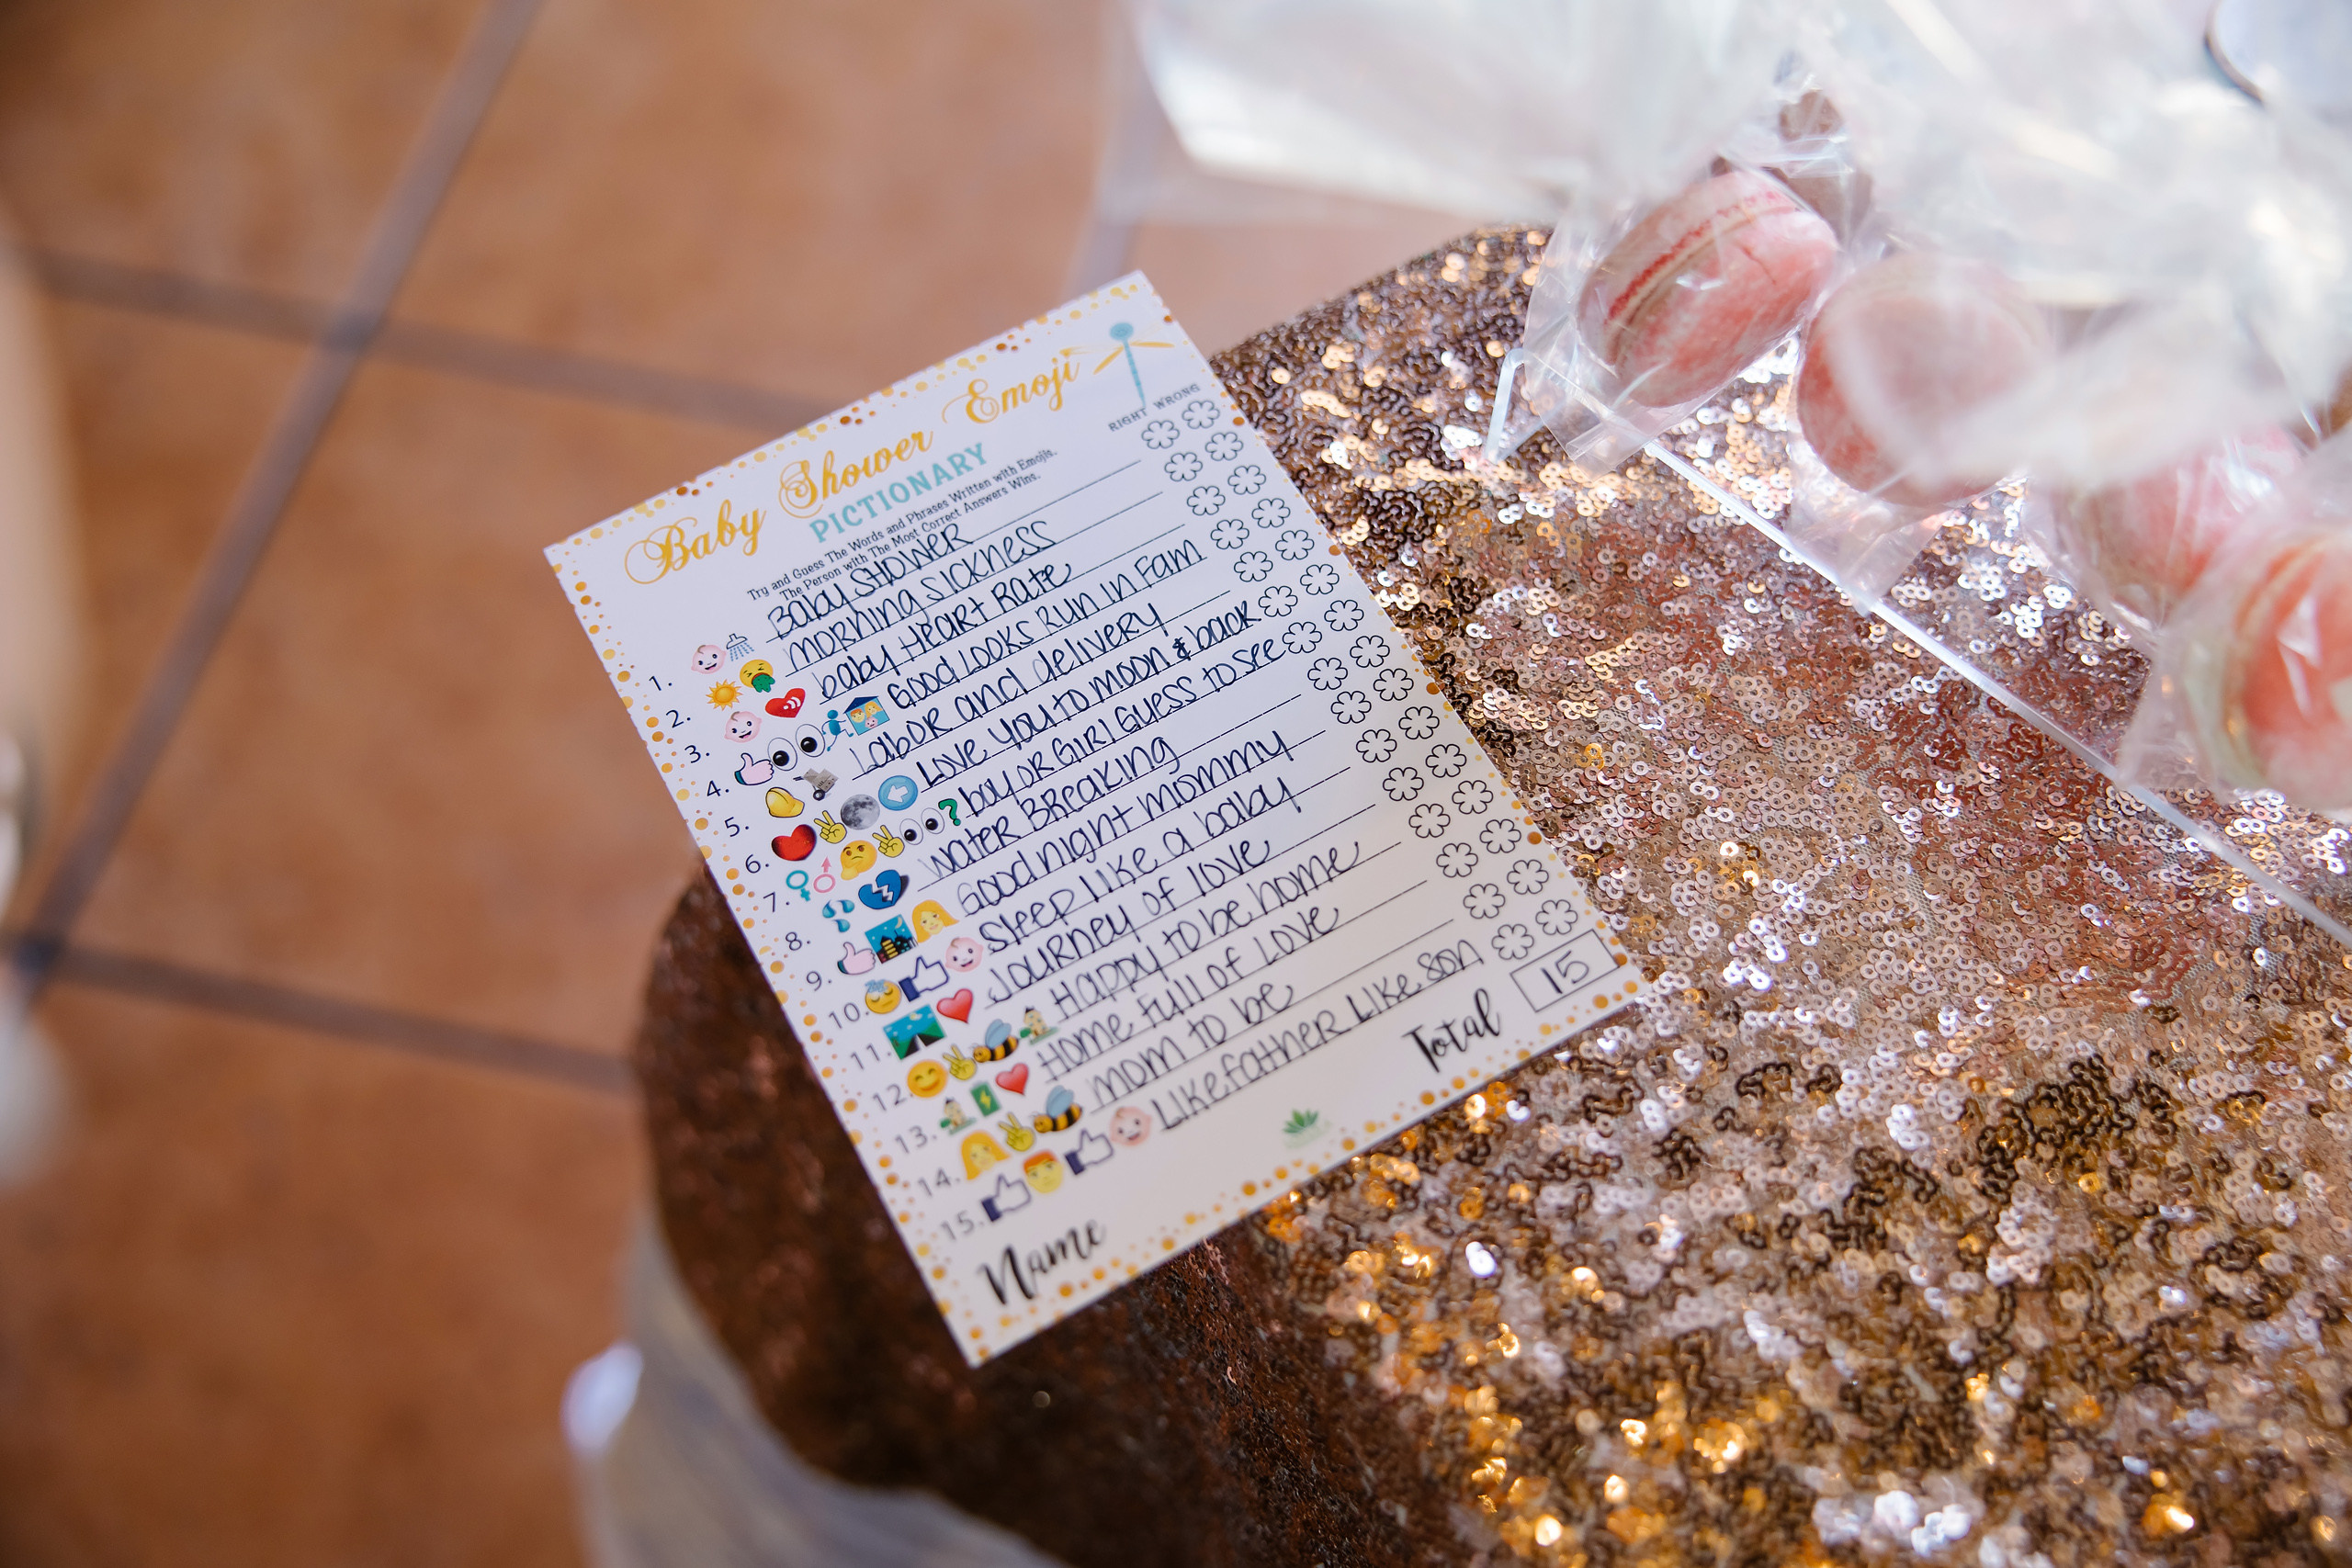 Baby Shower Emoji
PICTIONARY
Try and Guess The Words and Phrases Written with Emojis.
The Person with The Most Correct Answers Wins.
RIGHT WRONG
1. Baby SHOWER
2. MORNING SICKNESS
3. baby HEART RATE
4. GOOD LOOKS RUN IN FAM
5. LabOR and delivery
6. LOVE you to moon & back
7. boy OR GIRL GUESS to see
8. WateR BReaking
9. GOOD night mommy
10. Sleep LIKE a baby
11. JOURNEY of love
12. Happy to be home
13. Home full of LOVE
14. mom to be
15. LIKE fatHER LIKE SON
Name
Total 15